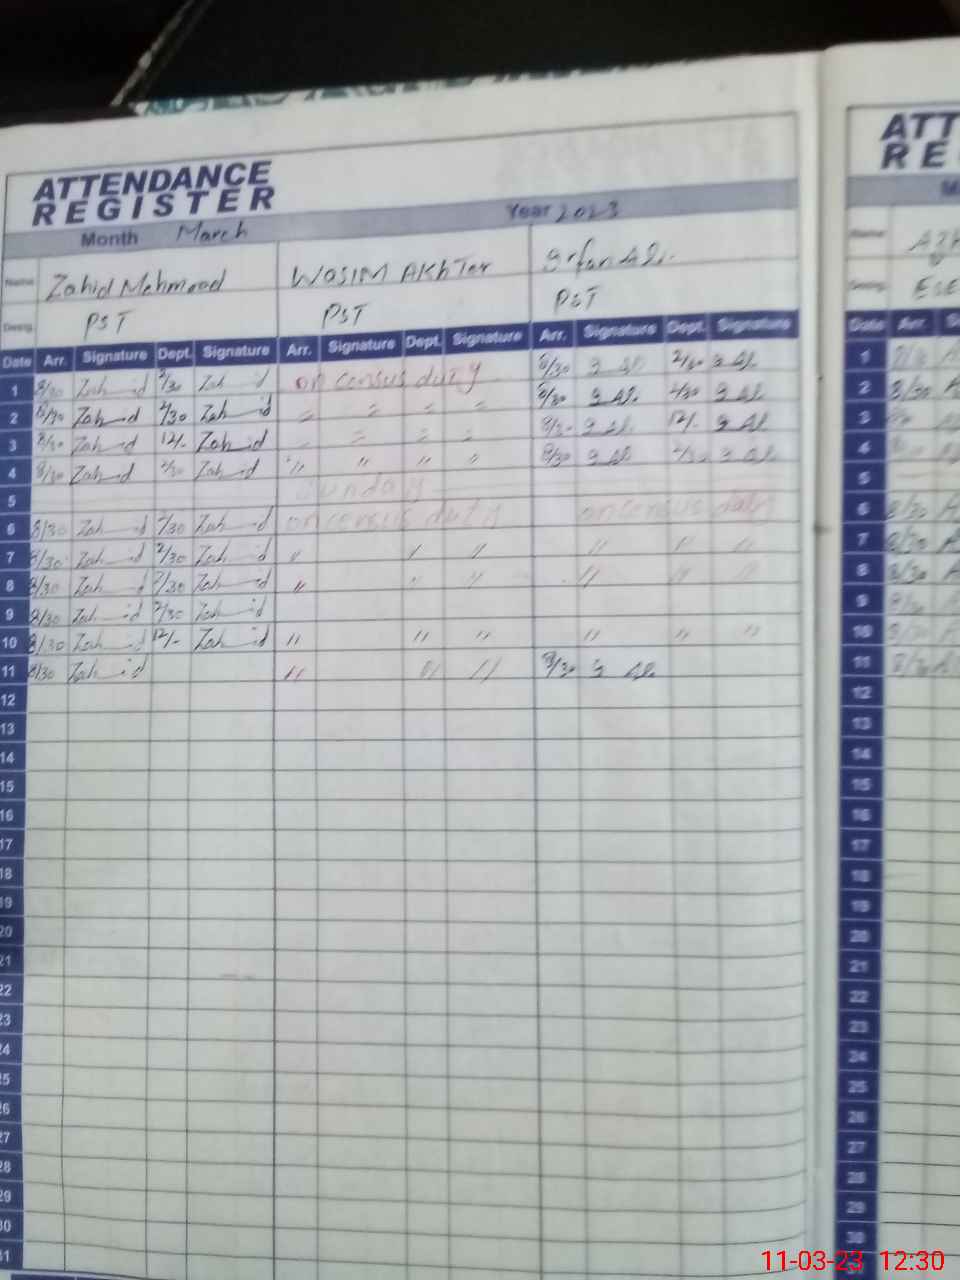 ATTENDANCE
REGISTER
Month March Year 2023
Name Zahid Mehmood WASIM AKhTar Irfan Ali.
Desig. PST PST PST
Date Arr. Signature Dept. Signature Arr. Signature Dept. Signature Arr. Signature Dept. Signature
1 8/30 Zahid 2/30 Zahid on census duty 8/30 2/30
2 8/30 Zahid 2/30 Zahid 〃 〃 〃 〃 8/30 2/30
3 8/30 Zahid 12/- Zahid 〃 〃 〃 〃 8/30 12/-
4 8/30 Zahid 2/30 Zahid 〃 〃 〃 〃 8/30 2/30
5 Sunday
6 8/30 Zahid 2/30 Zahid on census duty on census duty
7 8/30 Zahid 2/30 Zahid 〃 〃 〃 〃 〃 〃
8 8/30 Zahid 2/30 Zahid 〃 〃 〃 〃 〃 〃
9 8/30 Zahid 2/30 Zahid
10 8/30 Zahid 12/- Zahid 〃 〃 〃 〃 〃 〃
11 8/30 Zahid 〃 〃 〃 8/30
12
13
14
15
16
17
18
19
20
21
22
23
24
25
26
27
28
29
30
31
ATT
RE
Name
Desig. ESE
Date Arr. S
1
2 8/30 A
3
4
5
6 8/30 A
7 8/30 A
8 8/30 A
9 8/30 A
10 8/30 A
11 8/30 A
12
13
14
15
16
17
18
19
20
21
22
23
24
25
26
27
28
29
30
11-03-23 12:30